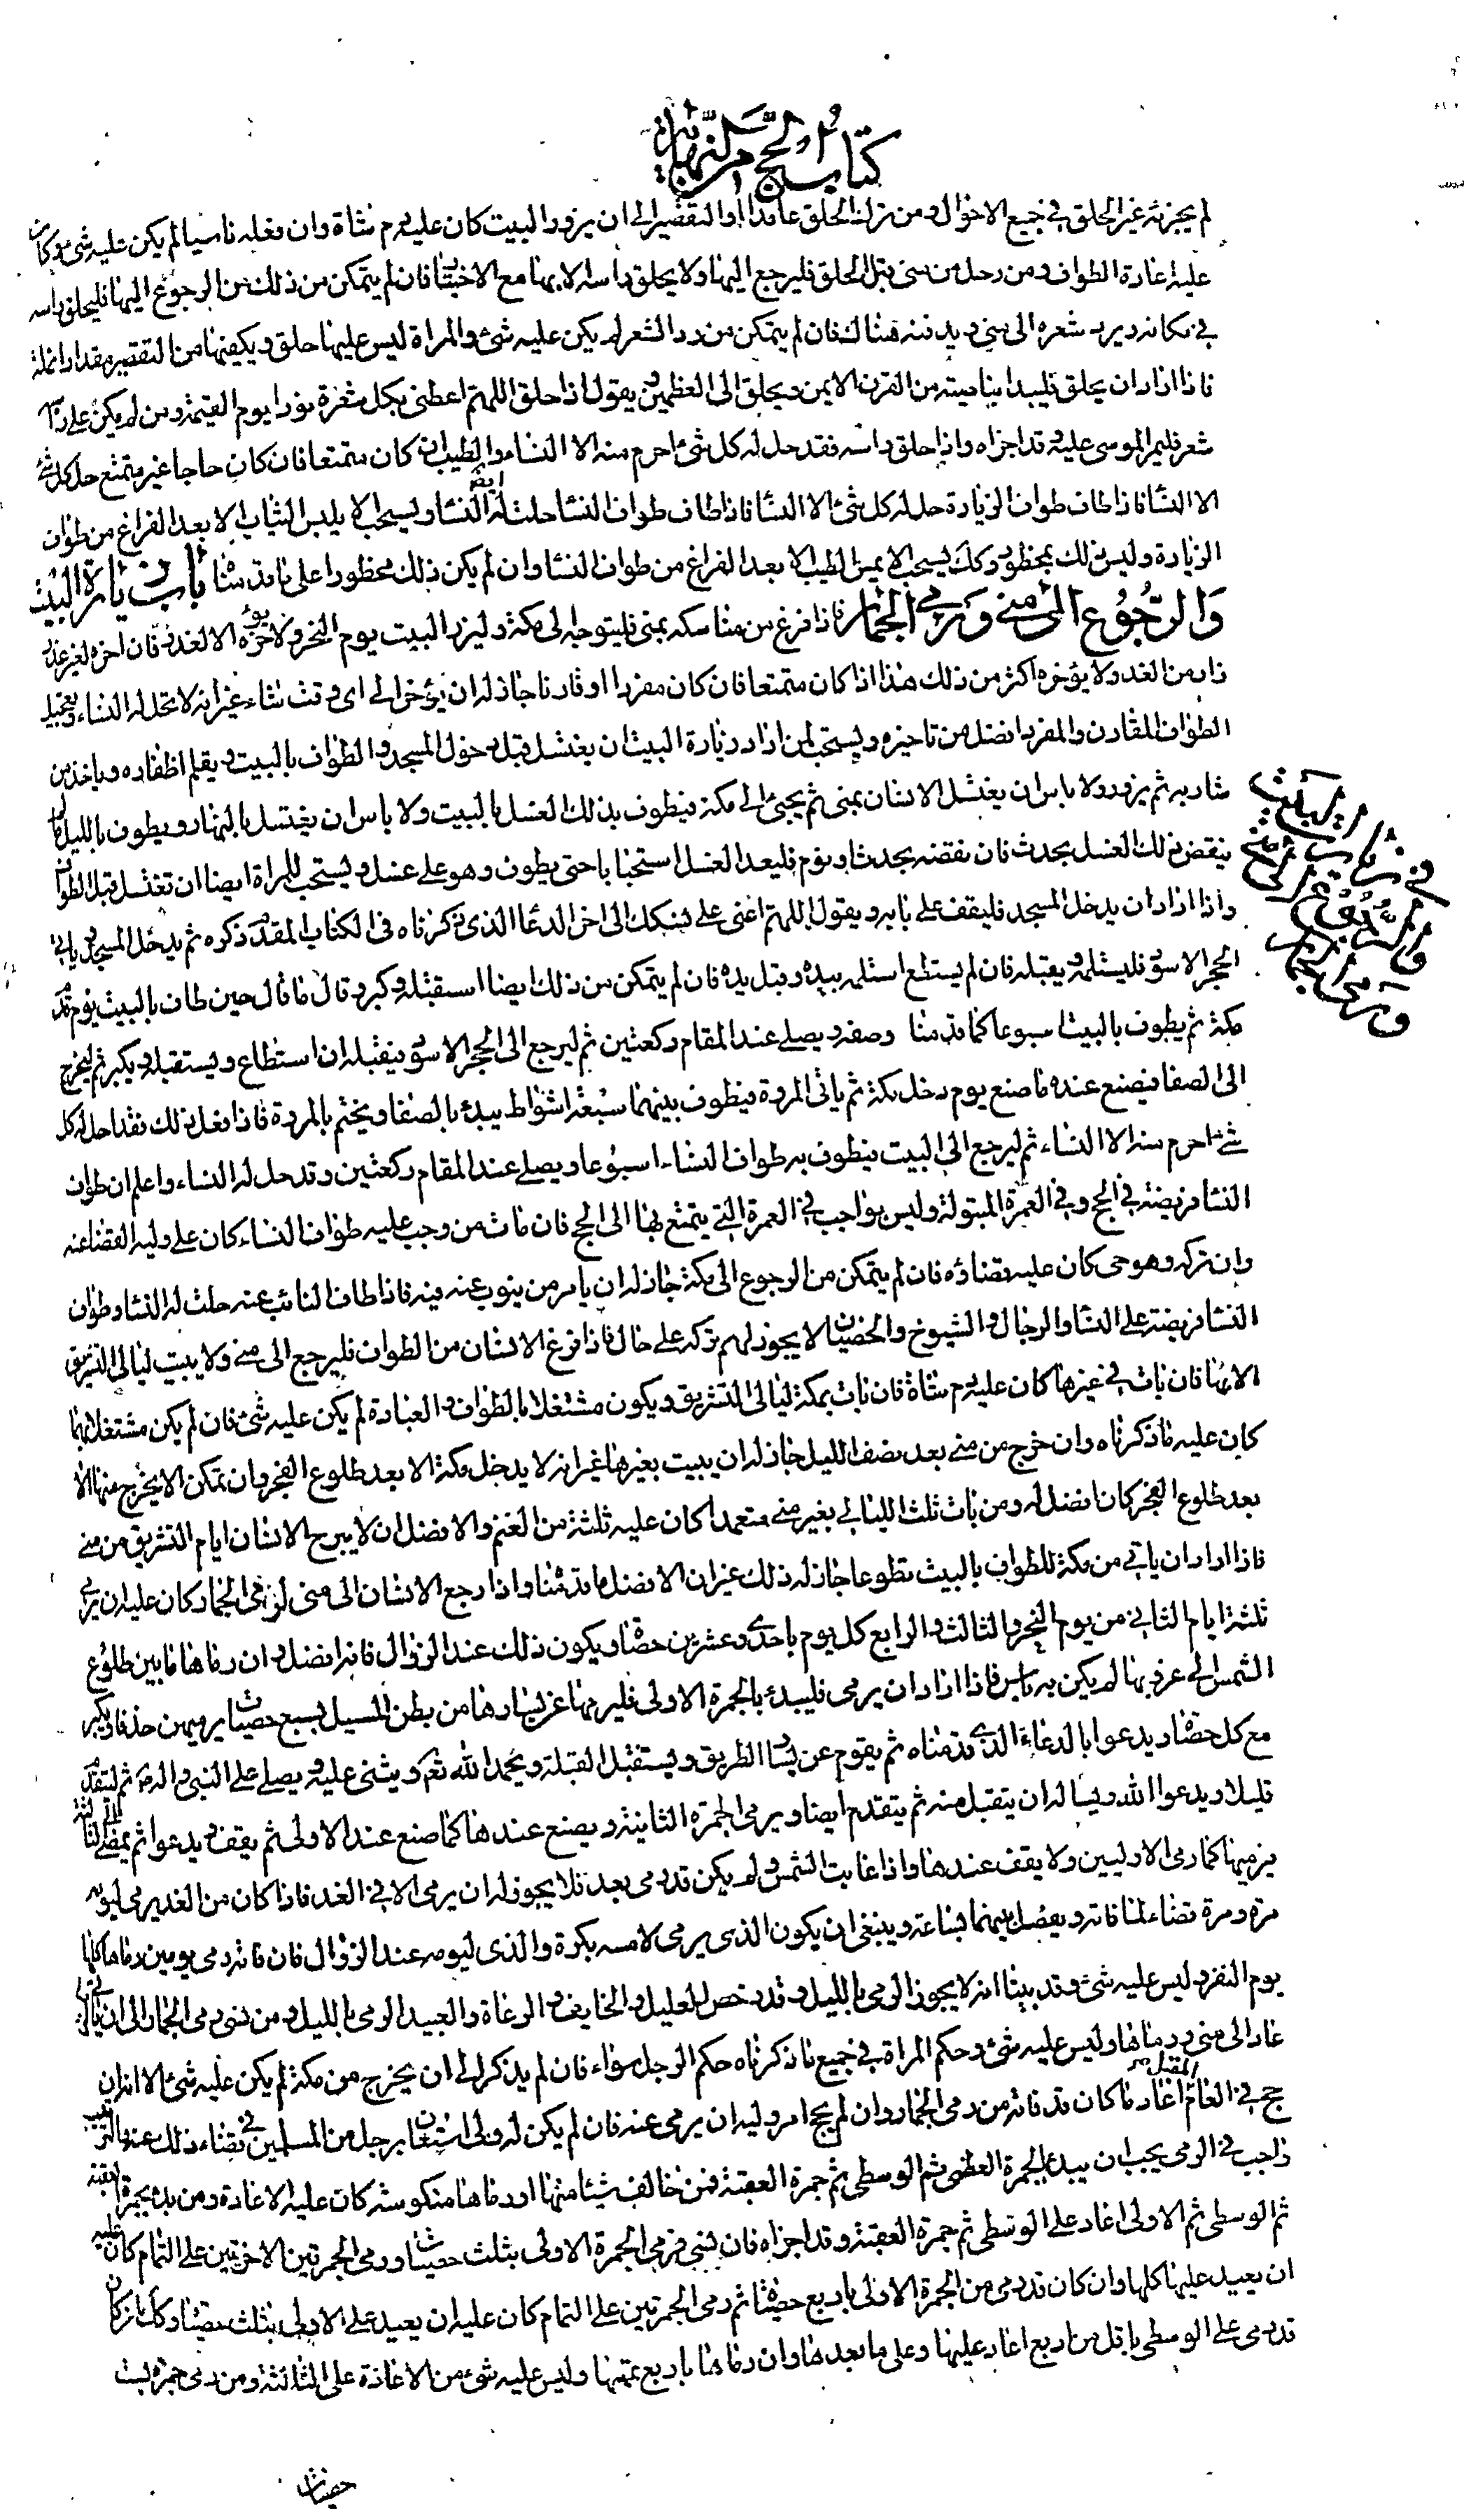 كتاب الحج من النهاية
لم يجزئه غير الحلق في جميع الاحوال ومن ترك الحلق عامدا او التقصير الى ان يزور البيت كان عليه دم شاة وان فعله ناسيا لم يكن عليه شئ وكان
عليه اعادة الطواف ومن رحل من منى قبل الحلق فليرجع اليها ولا يحلق راسه الا بها مع الاختيار فان لم يتمكن من ذلك من الرجوع اليها فليحلق راسه
في مكانه ويرد شعره الى منى ويدفنه هناك فان لم يتمكن من رد الشعر لم يكن عليه شئ والمراة ليس عليها حلق ويكفيها من التقصير مقدار انملة
فاذا اراد ان يحلق فليبدا بناصيته من القرن الايمن ويحلق الى العظمين ويقول اذا حلق اللهم اعطني بكل شعرة نورا يوم القيمة ومن لم يكن على راسه
شعر فليمر الموسى عليه وقد اجزاه واذا حلق راسه فقد حل له كل شئ احرم منه الا النساء والطيب ان كان متمتعا فان كان حاجا غير متمتع حل كل شئ
الا النساء فاذا طاف طواف الزيارة حل له كل شئ الا النساء فاذا طاف طواف النساء حلت له ايضا النساء ويستحب الا يلبس الثياب الا بعد الفراغ من طواف
الزيادة وليس ذلك بمحظور وكك يستحب الا يمس الطيب الا بعد الفراغ من طواف النساء وان لم يكن ذلك محظورا على ما قدمناه باب زيارة البيت
والرجوع الى منى ورمي الجمار فاذا فرغ من مناسكه بمنى فليتوجه الى مكة وليزر البيت يوم النحر ولا يؤخره الا لعذر فان اخره لعذر
زاره من الغد ولا يؤخره اكثر من ذلك هذا اذا كان متمتعا فان كان مفردا او قارنا جاز له ان يؤخر الى اي وقت شاء غير انه لا تحل له النساء وتعجيل
الطواف للقارن والمفرد افضل من تاخيره ويستحب لمن اراد زيارة البيت ان يغتسل قبل دخول المسجد والطواف بالبيت ويقلم اظفاره وياخذ من
شاربه ثم يزور ولا باس ان يغتسل الانسان بمنى ثم يجيئ الى مكة فيطوف بذلك الغسل بالبيت ولا باس ان يغتسل بالنهار ويطوف بالليل ما لم
ينقض ذلك الغسل بحدث فان نقضه بحدث او نوم فليعد الغسل استحبابا حتى يطوف وهو على غسل ويستحب للمراة ايضا ان تغتسل قبل الطواف
واذا اراد ان يدخل المسجد فليقف على بابه ويقول اللهم اعني على نسكك الى اخر الدعا الذي ذكرناه في الكتاب المقدم ذكره ثم يدخل المسجد وياتي
الحجر الاسود فيستلمه ويقبله فان لم يستطع استلمه بيده وقبل يده فان لم يتمكن من ذلك ايضا استقبله وكبر وقال ما قال حين طاف بالبيت يوم قدم
مكة ثم يطوف بالبيت اسبوعا كما قدمنا وصفه ويصلي عند المقام ركعتين ثم ليرجع الى الحجر الاسود فيقبله ان استطاع ويستقبله ويكبر ثم ليخرج
الى الصفا فيصنع عنده ما صنع يوم دخل مكة ثم ياتي المروة فيطوف بينهما سبعة اشواط يبدئ بالصفا ويختم بالمروة فاذا فعل ذلك فقد احل له كل
شئ احرم منه الا النساء ثم ليرجع الى البيت فيطوف به طواف النساء اسبوعا ويصلي عند المقام ركعتين وقد حل له النساء واعلم ان طواف
النساء فريضة في الحج وفي العمرة المبتولة وليس بواجب في العمرة التي يتمتع بها الى الحج فان مات من وجب عليه طواف النساء كان على وليه القضاء عنه
وان تركه وهو حي كان عليه قضاؤه فان لم يتمكن من الرجوع الى مكة جاز له ان يامر من ينوب عنه فيه فاذا طاف النائب عنه حلت له النساء وطواف
النساء فريضة على النساء والرجال والشيوخ والخصيان لا يجوز لهم تركه على حال فاذا فرغ الانسان من الطواف فليرجع الى منى ولا يبيت ليالي التشريق
الا بها فان بات في غيرها كان عليه دم شاة فان بات بمكة ليالي التشريق ويكون مشتغلا بالطواف والعبادة لم يكن عليه شئ فان لم يكن مشتغلا بهما
كان عليه ما ذكرناه وان خرج من منى بعد نصف الليل جاز له ان يبيت بغيرها غير انه لا يدخل مكة الا بعد طلوع الفجر وان تمكن الا يخرج منها الا
بعد طلوع الفجر كان افضل له ومن بات ثلث الليالي بغير منى متعمدا كان عليه ثلثة من الغنم والافضل ان لا يبرح الانسان ايام التشريق من منى
فاذا اراد ان ياتي من مكة للطواف بالبيت تطوعا جاز له ذلك غير ان الافضل ما قدمناه واذا رجع الانسان الى منى لرمي الجمار كان عليه ان يرمي
ثلثة ايام الثاني من يوم النحر والثالث والرابع كل يوم باحدى وعشرين حصاة ويكون ذلك عند الزوال فانه افضل وان رماها ما بين طلوع
الشمس الى غروبها لم يكن به باس فاذا اراد ان يرمي فليبدئ بالجمرة الاولى فليرمها عن يسارها من بطن المسيل بسبع حصيات يرميهن حذفا ويكبر
مع كل حصاة ويدعوا بالدعاء الذي قدمناه ثم يقوم عن يسار الطريق ويستقبل القبلة ويحمد الله تعم ويثني عليه ويصلي على النبي واله ثم ليتقدم
قليلا ويدعوا الله ويساله ان يتقبل منه ثم يتقدم ايضا ويرمي الجمرة الثانية ويصنع عندها كما صنع عند الاولى ثم يقف ويدعوا ثم يمضي الى الثالثة
يرميها كما رمى الاوليين ولا يقف عندها واذا غابت الشمس ولم يكن قد رمى بعد فلا يجوز له ان يرمي الا في الغد فاذا كان من الغد يرمي ليومه
مرة ومرة قضاء لما فاته ويفصل بينهما بساعة وينبغي ان يكون الذي يرمي لامسه بكرة والذي ليومه عند الزوال فان فاته رمي يومين رماها كلها
يوم النفر وليس عليه شئ وقد بينا انه لا يجوز الرمي بالليل وقد رخص للعليل والخايف والرعاة والعبيد الرمي بالليل ومن نسي رمي الجمار الى ان ياتي مكة
عاد الى منى ورماها وليس عليه شئ وحكم المراة في جميع ما ذكرناه حكم الرجل سواء فان لم يذكر الى ان يخرج من مكة لم يكن عليه شئ الا انه ان
حج في العام المقبل اعاد ما كان قد فاته من رمي الجمار وان لم يحج امر وليه ان يرمي عنه فان لم يكن له ولي استعان برجل من المسلمين في قضاء ذلك عنه والترتيب
واجب في الرمي يجب ان يبدئ بالجمرة العظمى ثم الوسطى ثم جمرة العقبة فمن خالف شيئا منها او رماها منكوسة كان عليه الاعادة ومن بدء بجمرة العقبة
ثم الوسطى ثم الاولى اعاد على الوسطى ثم جمرة العقبة وقد اجزاه فان نسي فرمى الجمرة الاولى بثلث حصيات ورمى الجمرتين الاخرتين على التمام كان عليه
ان يعيد عليها كلها وان كان قد رمى من الجمرة الاولى باربع حصيات ثم رمى الجمرتين على التمام كان عليه ان يعيد على الاولى بثلث حصيات وكك ان كان
قد رمى على الوسطى باقل من اربع اعاد عليها وعلى ما بعدها وان رماها باربع تممها وليس عليه شئ من الاعادة على الثالثة ومن رمى جمرة بست
حصيات
في زيارة البيت
والرجوع الى منى
ورمي الجمار